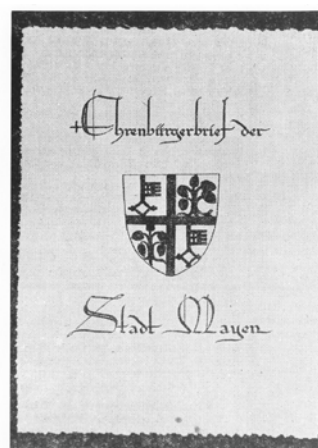 Ehrenbürgerbrief der
Stadt Mayen